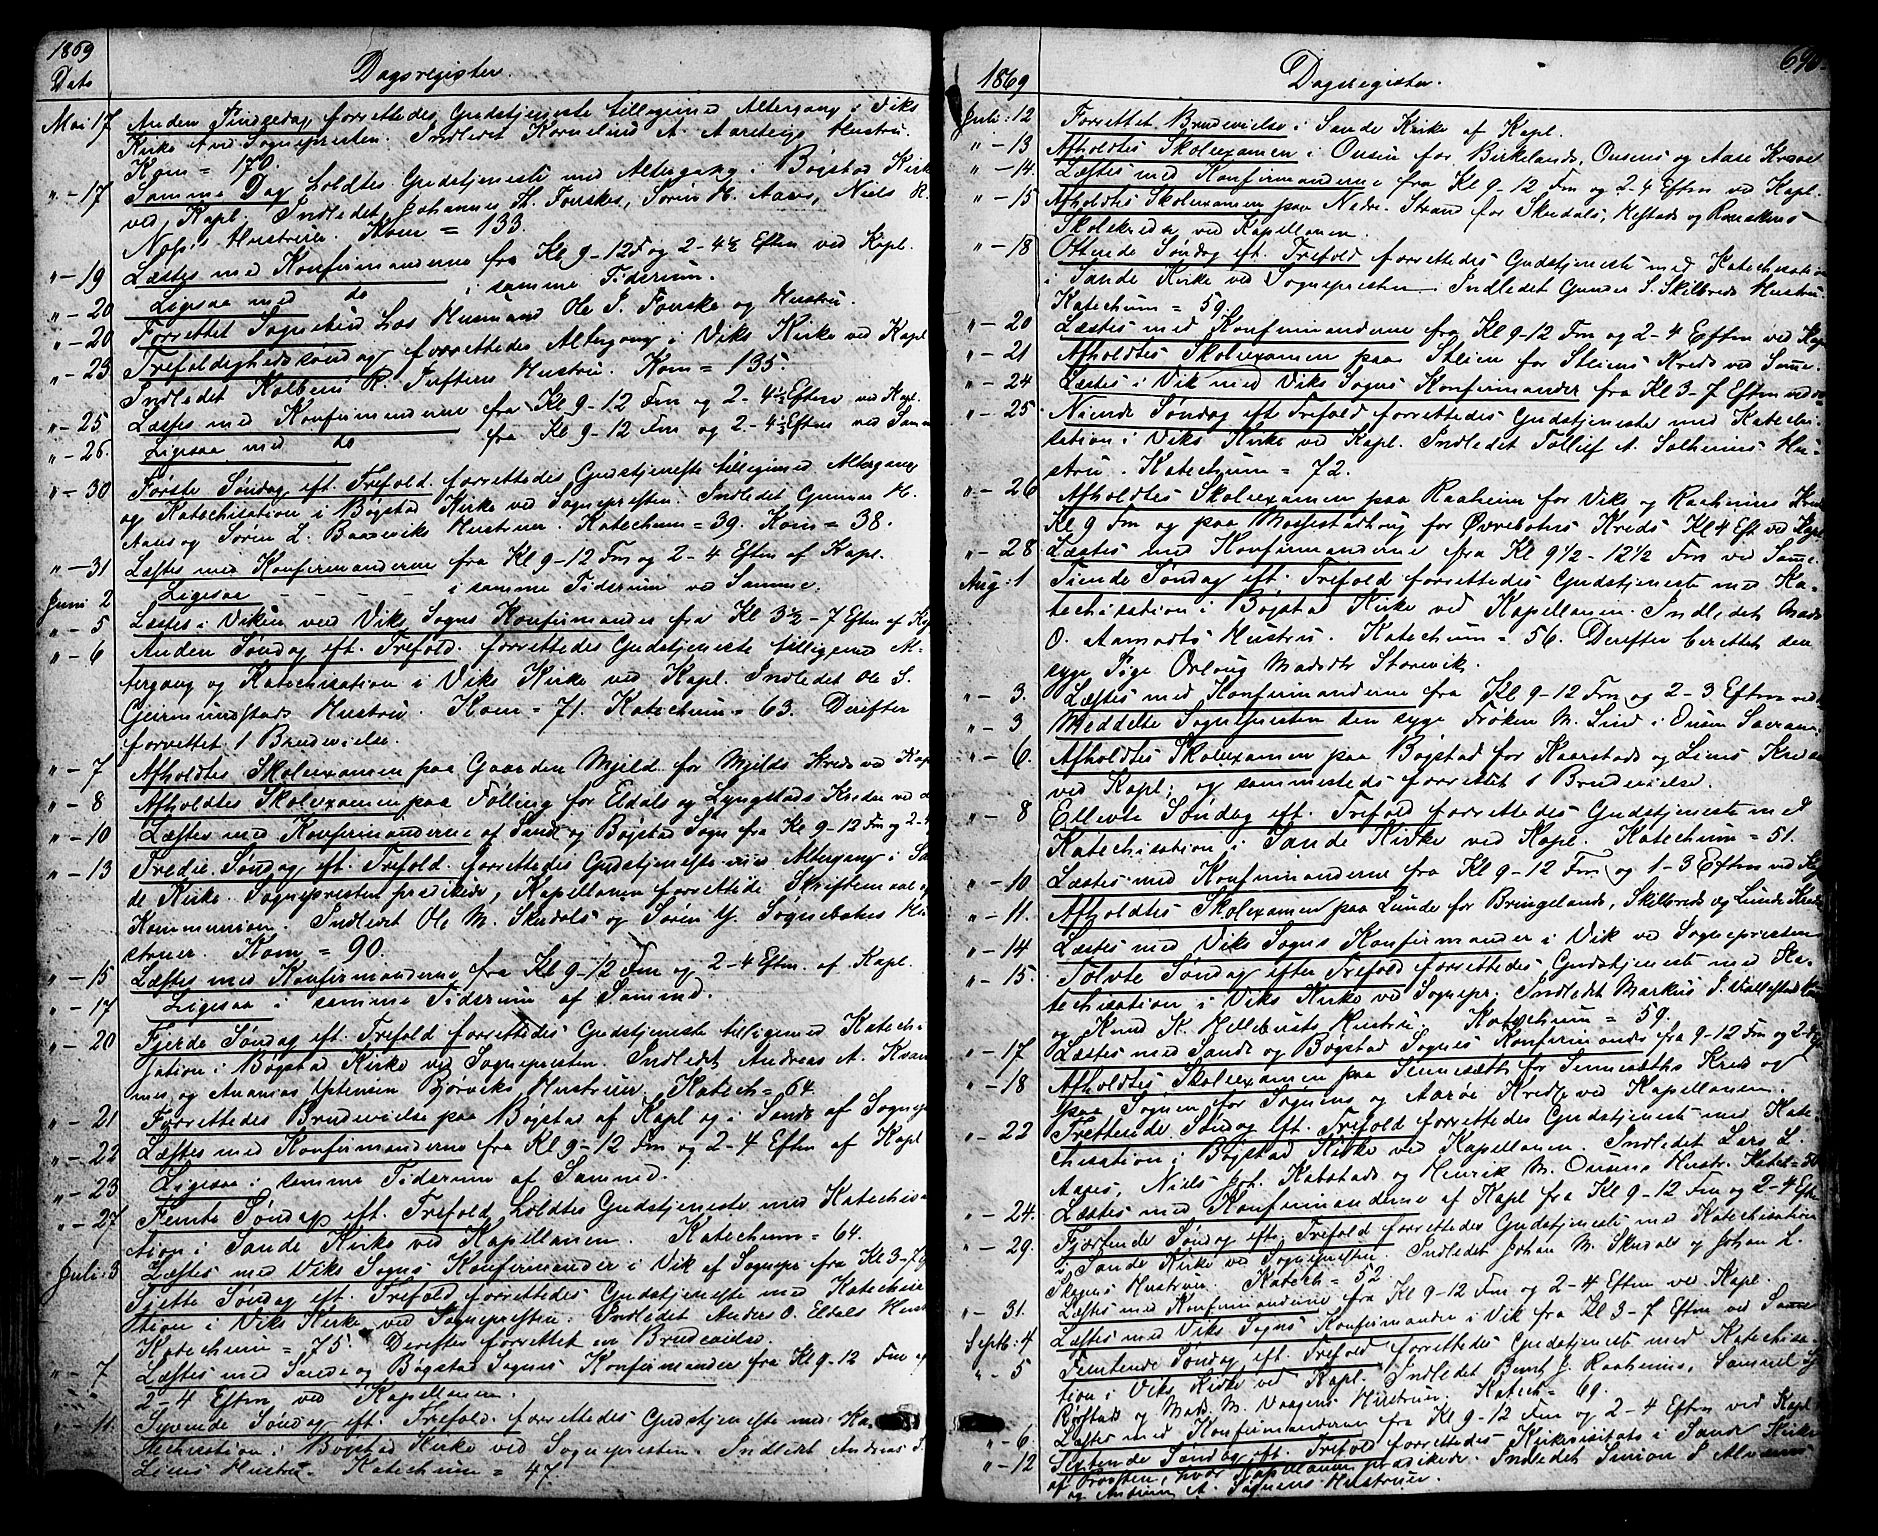 1869
Dato Dagsregister.
Mai 17 Anden Pindsedag forrettedes Gudstjeneste tilligemed Altergang i Viks
Kirke ved Sognepresten. Indledet Kornelius A. Hustru.
Kom = 170.
" - 17 Samme Dag holdtes Gudstjeneste med Altergang i Bøgstad Kirke
ved Kapl. Indledet Johannes Th. Fonskes, Søren H. Aases, Niels R.
Hustruer. Kom = 133.
" - 19 Læstes med Konfirmanderne fra Kl 9-12 F og 2-4½ Eftm ved Kapl.
" - 20 Ligesaa med do i samme Tidsrum.
" - 20 Forrettet Sognebud hos Husmand Ole J. Fonske og Hustru.
" - 23 Trefoldighedssøndag forrettedes Altergang i Viks Kirke ved Kapl
Indledet R. Tuftens Hustru. Kom = 135.
" - 25 Læstes med Konfirmanderne fra Kl 9-12 Fm og 2-4½ Eftm ved Kapl.
" - 26. Ligesaa med do fra Kl 9-12 Fm og 2-4½ Eftm ved Samme
" - 30 Første Søndag eft. Trefold. forrettedes Gudstjeneste tilligemed Altergang
og Katechisation i Bøgstad Kirke ved Sognepresten. Indledet Gunnar H.
Aases og Søren L. Hustruer. Katechum = 39. Kom = 38.
" - 31 Læstes med Konfirmanderne fra Kl 9-12 Fm og 2-4 Eftm af Kapl.
Juni 2 Ligesaa - - - - - i samme Tidsrum ved Samme.
" - 5 Læstes i Viken med Viks Sogns Konfirmander fra Kl 3½-7 Eftm af Kapl
" - 6 Anden Søndag eft. Trefold. forrettedes Gudstjeneste tilligemed Al-
tergang og Katechisation i Viks Kirke ved Kapl. Indledet Ole S.
Geirmundstads Hustru. Kom = 71. Katechum = 63. Derefter
forrettet 1 Brudevielse.
" - 7 Afholdtes Skoleexamen paa Gaarden Mjeld for Mjelds Kreds ved Kapl
" - 8 Afholdtes Skoleexamen paa Følling for Eldals og Lyngstads Kredse ved
" - 10 Læstes med Konfirmanderne af Sande og Bøgstad Sogn fra Kl 9-12 Fm og 2-4
" - 13 Tredie Søndag eft. Trefold. forrettedes Gudstjeneste med Altergang i San
de Kirke. Sognepresten prædikede, Kapellanen forrettede Skriftemaal og
Kommunion. Indledet Ole M. Skudals og Søren Hu
struer. Kom = 90.
" - 15 Læstes med Konfirmanderne fra Kl 9-12 Fm og 2-4 Eftm. af Kapl.
" - 17 Ligesaa i samme Tidsrum af Samme.
" - 20 Fjerde Søndag eft. Trefold forrettedes Gudstjeneste tilligemed Katechi-
sation i Bøgstad Kirke ved Sognepresten. Indledet Andreas A. Kvam
mes og Ananias Hustruer. Katech = 64.
" - 21 Forrettedes Brudevielse paa Bøgstad af Kapl og i Sande af Sognepr
" - 22 Læstes med Konfirmanderne fra Kl 9-12 Fm og 2-4 Eftm af Kapl
" - 23 Ligesaa i samme Tidsrum af Samme.
" - 27 Femte Søndag eft. Trefold. holdtes Gudstjeneste med Katechisa
tion i Sande Kirke ved Kapellanen. Katechum = 64.
Juli 3 Læstes med Viks Sogns Konfirmander i Vik af Sognepr fra Kl 3-7
Sjette Søndag eft. Trefold. forrettedes Gudstjeneste med Katechisa
tion i Viks Kirke ved Sognepresten. Indledet Anders O. Eldals Hustru
Katechum = 75. Derefter forrettet en Brudevielse.
" - 7 Læstes med Sande og Bøgstad Sognes Konfirmander fra Kl 9-12 Fm og
2-4 Eftm ved Kapellanen.
" - 11. Syvende Søndag eft. Trefold. forrettedes Gudstjeneste med Ka-
techisation i Bøgstad Kirke ved Sognepresten. Indledet Andreas
Liens Hustru. Katechum = 47.
1869 Dagsregister. 690.
Juli 12 Forrettet Brudevielse i Sande Kirke af Kapl.
" - 13 Afholdtes Skoleexamen i Ousen for Birkelands, Ousens og Aase Kredse
" - 14. Læstes med Konfirmanderne fra Kl 9-12 Fm og 2-4 Eftm ved Kapl.
" - 15 Afholdtes Skoleexamen paa Nedre Strand for Skudals, Hestads og
Skolekredse ved Kapellanen.
" - 18 Ottende Søndag eft. Trefold forrettedes Gudstjeneste med Katechisation
i Sande Kirke ved Sognepresten. Indledet Gunder S. Skilbreds Hustru.
Katechum = 59.
" - 20 Læstes med Konfirmanderne fra Kl 9-12 Fm og 2-4 Eftm ved Kapl
" - 21 Afholdtes Skoleexamen paa Steien for Steiens Kreds ved Samme.
" - 24 Læstes i Vik med Viks Sogns Konfirmander fra Kl 3-7 Eftm ved
" - 25. Niende Søndag eft Trefold forrettedes Gudstjeneste med Katechi-
sation i Viks Kirke ved Kapl. Indledet Tollief A. Solheims Hu-
stru. Katechum = 72.
" - 26 Afholdtes Skoleexamen paa Raaheim for Viks og Raaheims Kredse
Kl 9 Fm og paa Mosfestadhoug for Øvrebotns Kreds Kl 4 Eft ved Kapl
" - 28 Læstes med Konfirmanderne fra Kl 9½-12½ Fm ved Samme.
Aug: 1 Tiende Søndag eft. Trefold forrettedes Gudstjeneste med Ka-
techisation i Bøgstad Kirke ved Kapellanen. Indledet Mads
O. Aamodts Hustru. Katechum = 56. Derefter berettet den
syge Pige Orloug Madsdtr Storevik.
" - 3. Læstes med Konfirmanderne fra Kl 9-12 Fm og 2-3 Eftm ved
" - 3 Meddelte Sognepresten den syge Frøken M. Lind i Ousen Sacram.
" - 6. Afholdtes Skoleexamen paa Bøgstad for Kaarstads og Liens Kredse
ved Kapl, og sammesteds forrettet 1 Brudevielse.
" - 8 Ellevte Søndag eft. Trefold forrettedes Gudstjeneste med
Katechisation i Sande Kirke ved Kapl. Katechum = 51.
" - 10 Læstes med Konfirmanderne fra Kl 9-12 Fm og 1-3 Eftm ved Kapl
" - 11. Afholdtes Skolexamen paa Lunde for Bringelands, Skilbreds og Lunde Kredse
" - 14 Læstes med Viks Sogns Konfirmander i Vik ved Sognepresten
" - 15. Tolvte Søndag efter Trefold forrettedes Gudstjeneste med Ka-
techisation i Viks Kirke ved Sognepr. Indledet Markus J.
og Knud K. Hellebusts Hustru. Katechum = 59.
" - 17 Læstes med Sande og Bøgstad Sognes Konfirmande fra 9-12 Fm og 2-4
" - 18 Afholdtes Skoleexamen paa Sunnesæth for Sunnesæths Kreds og
paa Sognen for Sognens og Aarøe Kredse ved Kapellanen.
" - 22 Trettende Søndag eft. Trefold forrettedes Gudstjeneste med Kate-
chisation i Bøgstad Kirke ved Kapellanen. Indledet Lars L.
Aases, Niels Joh. Kalstads og Henrik M. Ousens Hustr. Katec = 50
" - 24. Læstes med Konfirmanderne af Kapl fra Kl 9-12 Fm og 2-4 Eft
" - 29. Fjortende Søndag eft. Trefold forrettedes Gudstjeneste med Katechisation
i Sande Kirke ved Sognepresten. Indledet Johan M. Skudals og Johan L.
Skogens Hustruer. Katech = 52
" - 31. Læstes med Konfirmanderne fra Kl 9-12 Fm og 2-4 Eftm ved Kapl.
Septb: 4 Læstes med Viks Sogns Konfirmander i Vik fra Kl 3-7 Eftm ved Samme
" - 5 Femtende Søndag eft. Trefold forrettedes Gudstjeneste med Katechisa-
tion i Viks Kirke ved Kapl. Indledet Bent J. Raaheims, Samuel
Rørstads og Mads M. Vaagens Hustruer. Katech = 69.
" - 6 Læstes med Konfirmanderne fra Kl 9-12 Fm og 2-4 Eftm ved Kapl
" - 12 Sextende Søndag eft. Trefold forrettedes Kirkevisitats i Sande Kirke
af Provsten, hvor Kapellanen prædikede. Indledet Simon S.
og Andreas A. Sognens Hustruer.